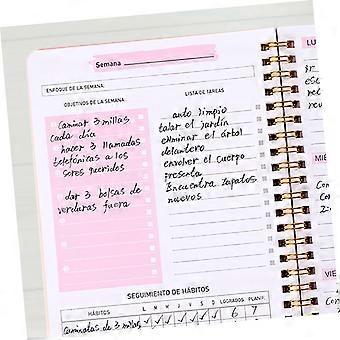 Semana
ENFOQUE DE LA SEMANA:
OBJETIVOS DE LA SEMANA
caminar 3 millas
cada día
hacer 3 llamadas
telefónicas a los
seres queridos
dar 3 bolsas de
verduras fuera
LISTA DE TAREAS
auto limpio
talar el jardín
eliminar el árbol
delantero
envolver el cuerpo
presenta
Encuentra zapatos
nuevos
SEGUIMIENTO DE HÁBITOS
HÁBITOS L M M J V S D LOGRADOS PLANIF.
Caminatas de 3 millas ✓ ✓ ✓ ✓ ✓ ✓ 6 7
LU
MIÉ
VIE